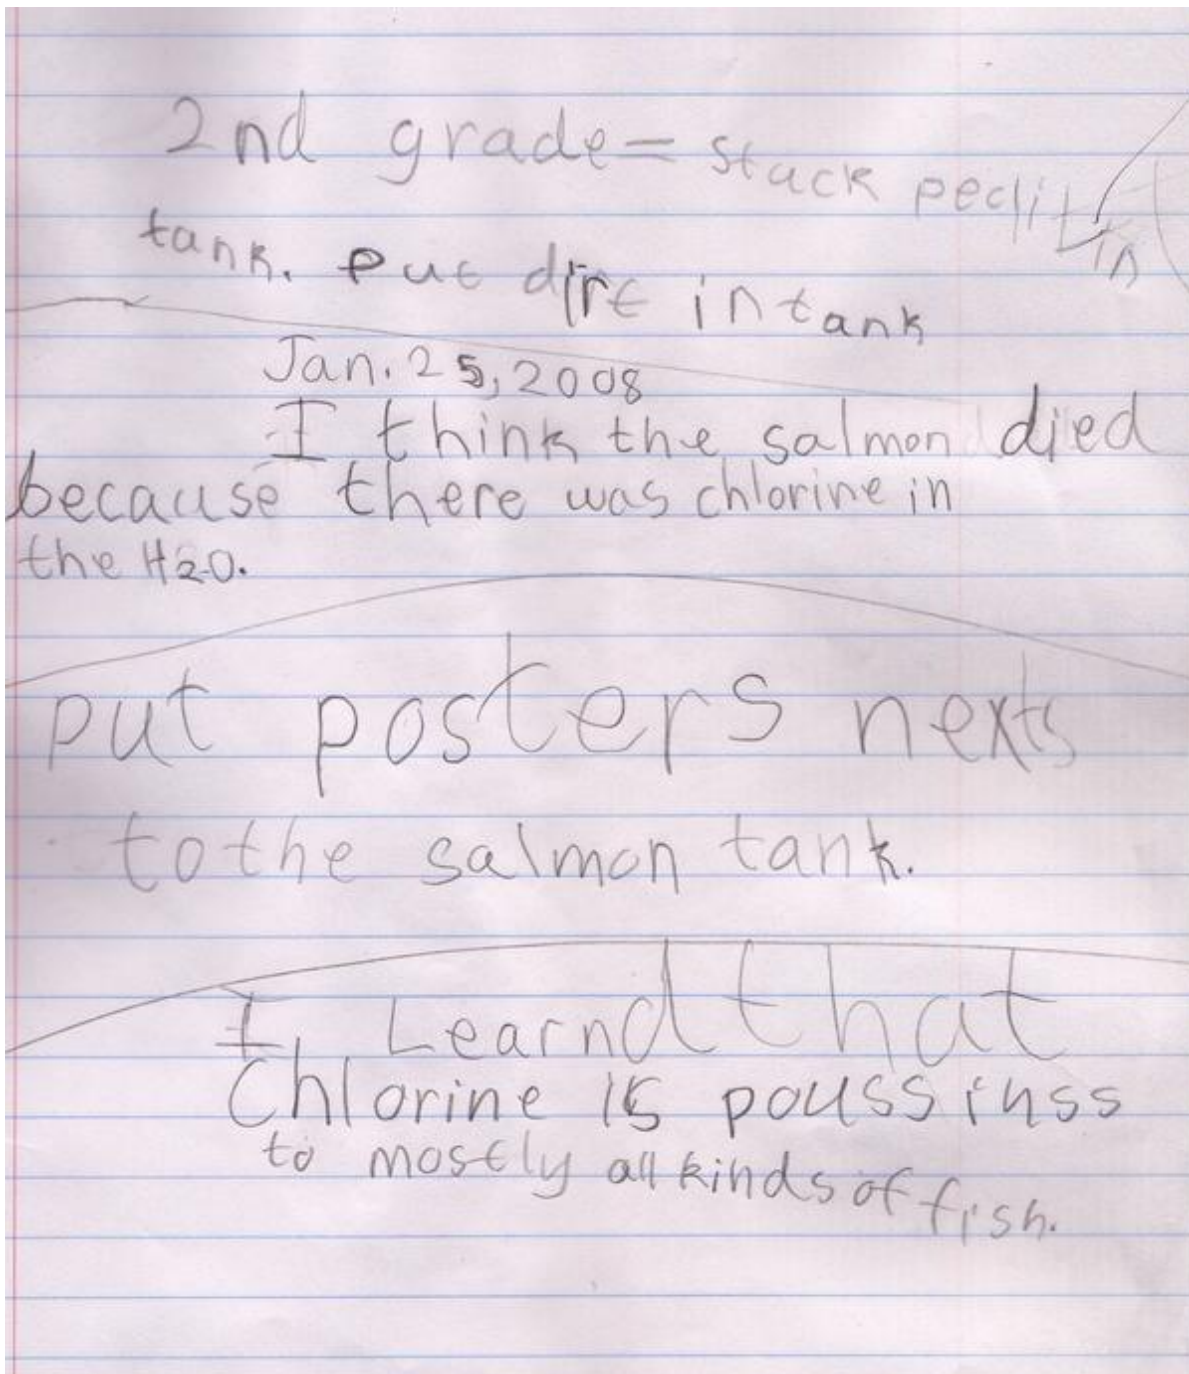 2nd grade = stuck in
tank. put dirt in tank
Jan. 25, 2008
I think the salmon died
because there was chlorine in
the H2O.
put posters nexts
to the salmon tank.
I Learnd that
Chlorine is poussinss
to mostly all kinds of fish.